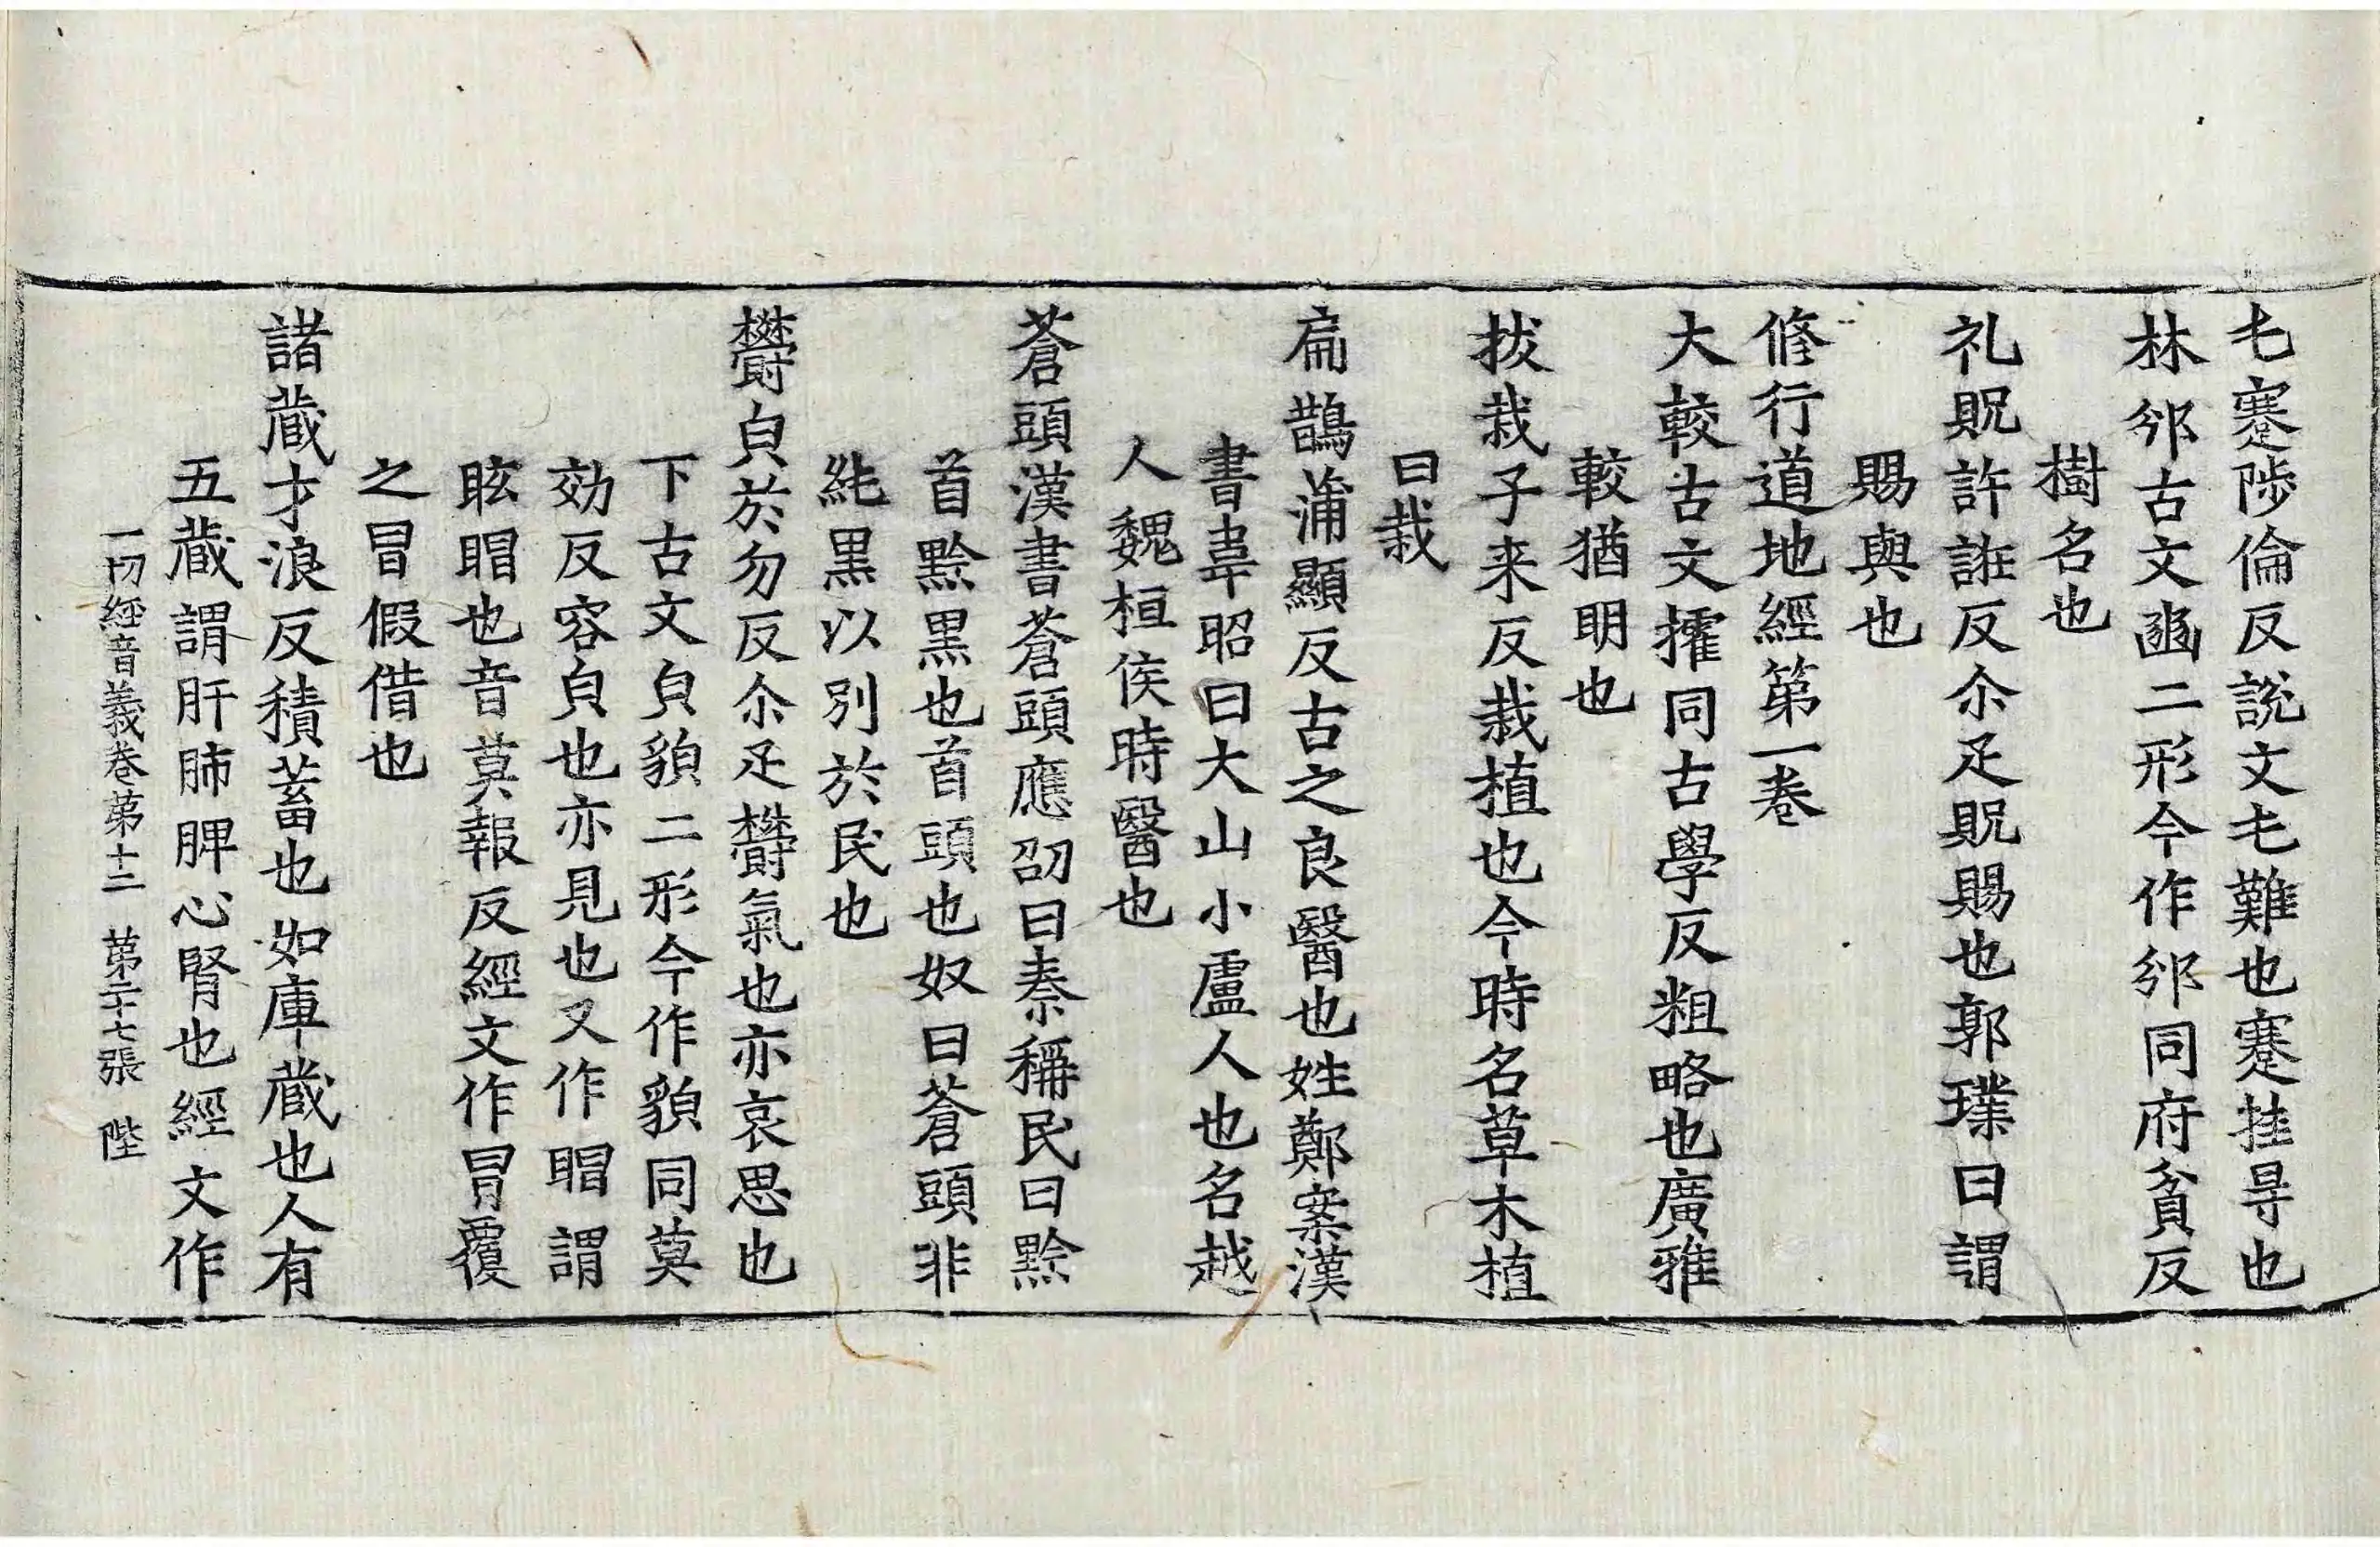 乇蹇陟倫反說文乇難也蹇挂㝵也
林邠古文豳二形今作邠同府貧反
樹名也
礼貺許誑反尒疋貺賜也郭璞曰謂
賜與也
修行道地經第一卷
大較古文㩁同古學反粗略也廣雅
較猶明也
拔栽子来反栽植也今時名草木植
曰栽
扁鵲蒲顯反古之良醫也姓鄭案漢
書韋昭曰大山小盧人也名越
人魏桓侯時醫也
蒼頭漢書蒼頭應劭曰秦稱民曰黔
首黔黒也首頭也奴曰蒼頭非
純黒以別於民也
欝皃於勿反尒疋欝氣也亦哀思也
下古文皃䫉二形今作貌同莫
効反容皃也亦見也又作𥈆謂
眩𥈆也音莫報反經文作冒覆
之冒假借也
諸蔵才浪反積蓄也如庫蔵也人有
五蔵謂肝肺脾心腎也經文作
一切經音義卷第十二 第二十七張 陛